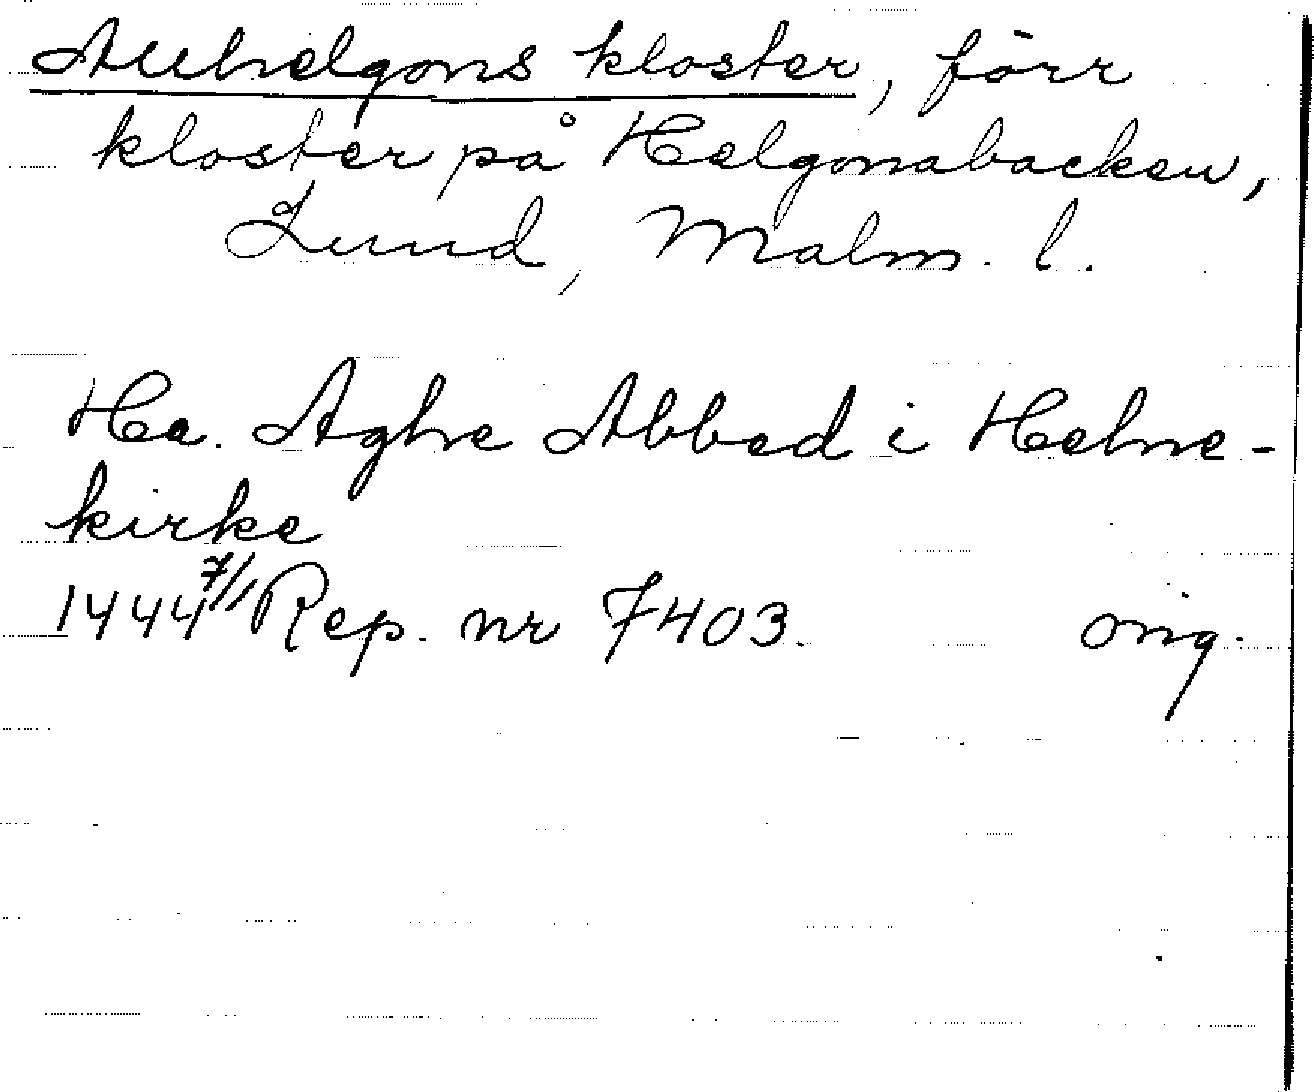 Allhelgons kloster, förr
kloster på Helgonabacken,
Lund, Malm. l.
He. Aghe Abbed i Helne-
kirke
1444 7/1 Rep. nr 7403. orig.